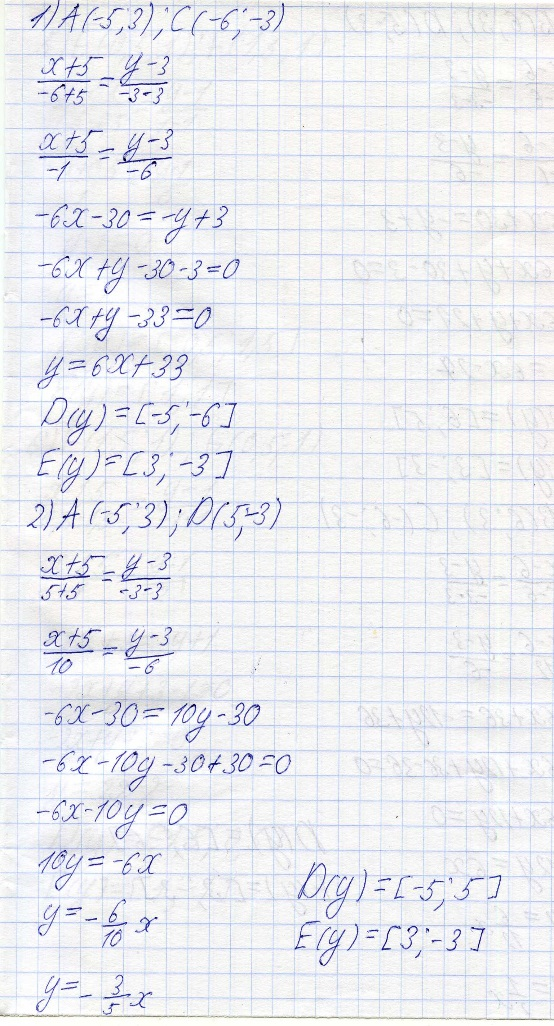 1) A(-5;3); C(-6;-3)
(x+5)/(-6+5) = (y-3)/(-3-3)
(x+5)/(-1) = (y-3)/(-6)
-6x-30=-y+3
-6x+y-30-3=0
-6x+y-33=0
y=6x+33
D(y)=[-5;-6]
E(y)=[3;-3]
2) A(-5;3); D(5;-3)
(x+5)/(5+5) = (y-3)/(-3-3)
(x+5)/10 = (y-3)/(-6)
-6x-30=10y-30
-6x-10y-30+30=0
-6x-10y=0
10y=-6x
y=-6/10 x
y=-3/5 x
D(y)=[-5;5]
E(y)=[3;-3]